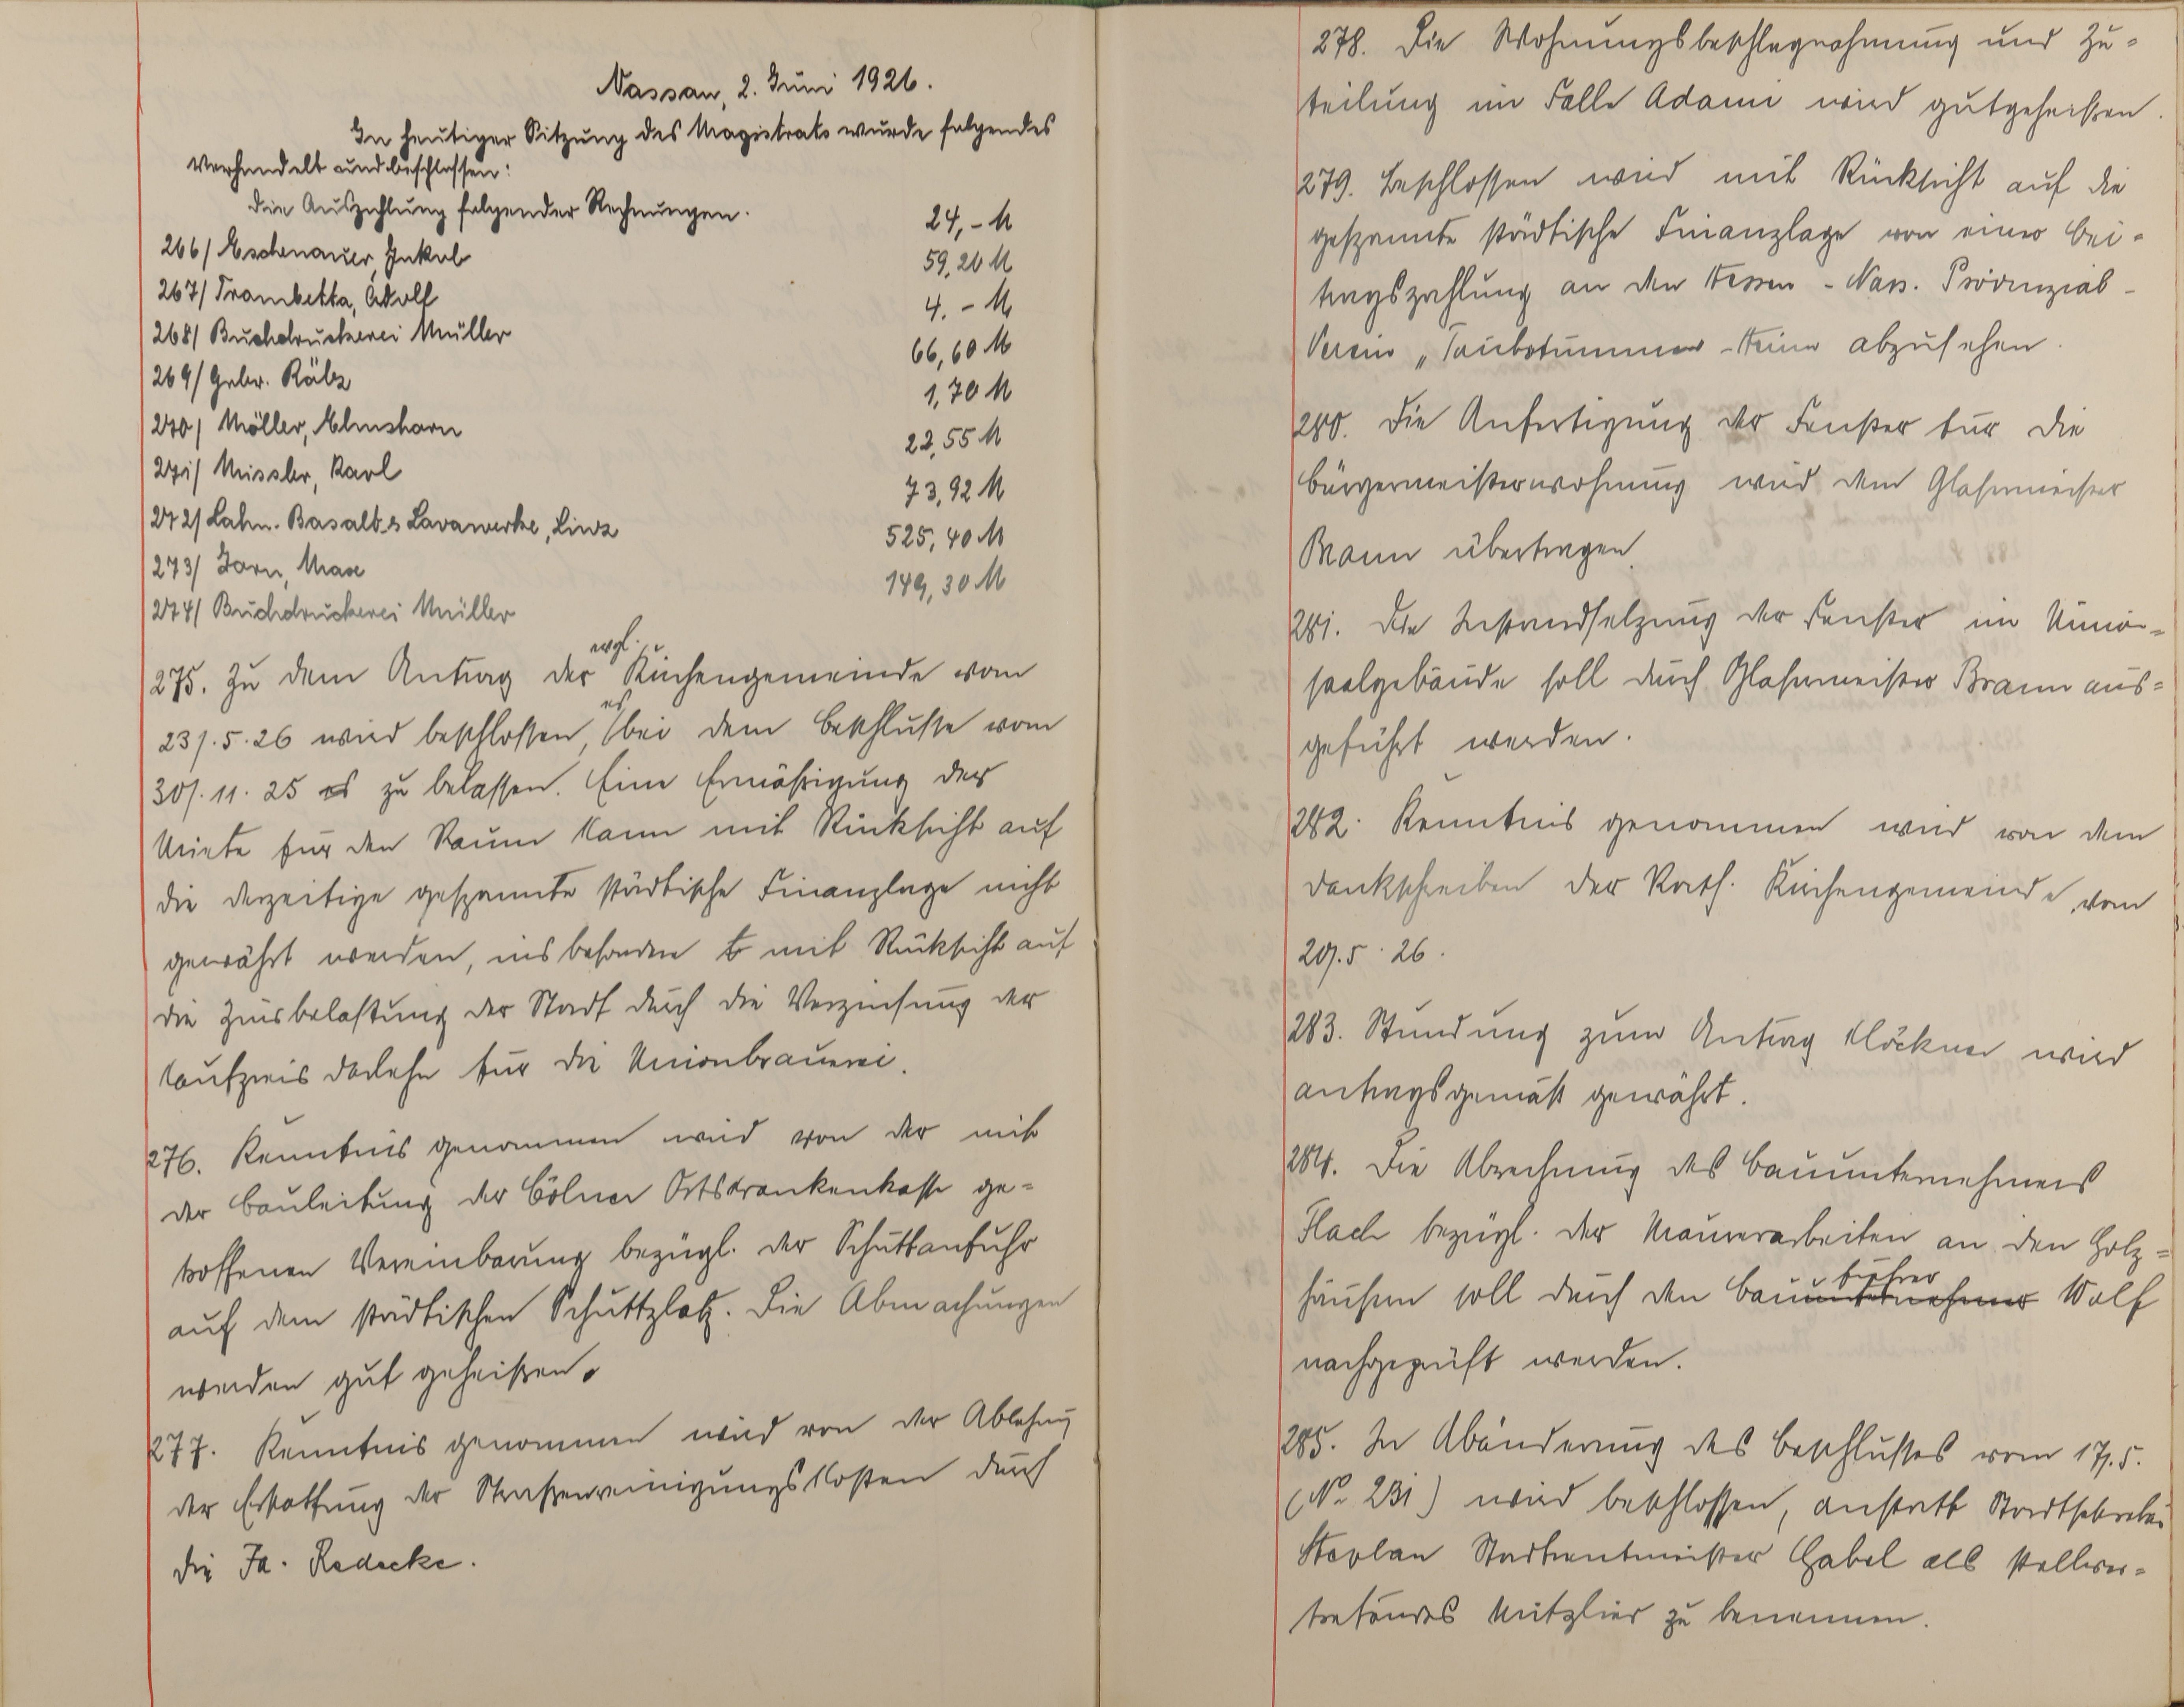 Nassau, 2. Juni 1926.
In heutiger Sitzung des Magistrats wurde folgendes
verhandelt und beschlossen:
Die Auszahlung folgender Rechnungen.
266/ Eschenauer, Jakob 24,- M
267/ Trombetta, Adolf 59,20 M
268/ Buchdruckerei Müller 4.- M
269/ Gebr. Kölz 66,60 M
270/ Möller, Elmshorn 1,70 M
271/ Missler, Karl 22,55 M
272/ Lahn. Basalt- & Lavawerke, Linz 73,92 M
273/ Zorn, Max 525,40 M
274/ Buchdruckerei Müller 149,30 M
275. Zu dem Antrag der evgl. Kirchengemeinde vom
23/.5.26 wird beschlossen, es bei dem Beschlusse vom
30/.11.25 es zu belassen. Eine Ermäßigung der
Miete für den Raum kann mit Rücksicht auf
die derzeitige gespannte städtische Finanzlage nicht
gewährt werden, insbesondere mit Rücksicht auf
die Zinsbelastung der Stadt durch die Verzinsung der
Kaufpreisdarlehn für die Unionbrauerei.
276. Kenntnis genommen wird von der mit
der Bauleitung der Cölner Ortskrankenkasse ge-
troffenen Vereinbarung bezügl. der Schuttanfuhr
auf dem städtischen Schuttplatz. Die Abmachungen
werden gut geheißen.
277. Kenntnis genommen wird von der Ablehnung
der Erstattung der Straßenreinigungskosten durch
die Fa. Redecke.
278. Die Wohnungsbeschlagnahmung und Zu-
teilung im Falle Adami wird gutgeheißen.
279. Beschlossen wird mit Rücksicht auf die
gespannte städtische Finanzlage von einer Bei-
tragszahlung an den Hessen-Nass. Provinzial-
Verein „Taubstummen-Heim abzusehen.
280. Die Anfertigung der Fenster für die
Bürgermeisterwohnung wird dem Glasermeister
Braun übertragen.
281. Die Instandsetzung der Fenster im Union-
saalgebäude soll durch Glasermeister Braun aus-
geführt werden.
282. Kenntnis genommen wird von dem
Dankschreiben der Kath. Kirchengemeinde vom
29/.5.26.
283. Stundung zum Antrag Klöckner wird
antragsgemäß gewährt.
284. Die Abrechnung des Bauunternehmers
Flach bezügl. der Maurerarbeiten an den Holz-
häusern soll durch den Bauunternehmer Wolf
nachgeprüft werden.
285. In Abänderung des Beschlusses vom 17/.5.
(№ 231) wird beschlossen, anstatt Stadtsekretär
Stadtrentmeister Gabel als stellver-
tretendes Mitglied zu benennen.